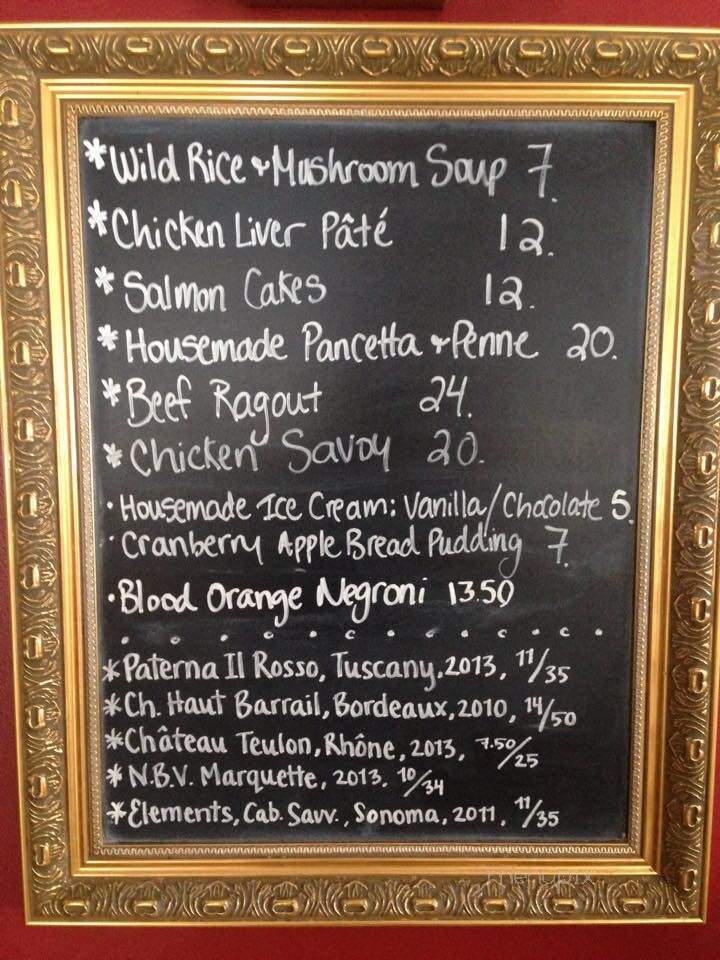 *Wild Rice & Mushroom Soup 7.
*Chicken Liver Pâté 12.
*Salmon Cakes 12.
*Housemade Pancetta & Penne 20.
*Beef Ragout 24.
*Chicken Savoy 20.
·Housemade Ice Cream: Vanilla/Chocolate 5.
·Cranberry Apple Bread Pudding 7.
·Blood Orange Negroni 13.50
*Paterna Il Rosso, Tuscany, 2013, 11/35
*Ch. Haut Barrail, Bordeaux, 2010, 14/50
*Château Teulon, Rhône, 2013, 7.50/25
*N.B.V. Marquette, 2013. 10/34
*Elements, Cab. Sauv., Sonoma, 2011, 11/35
menupix